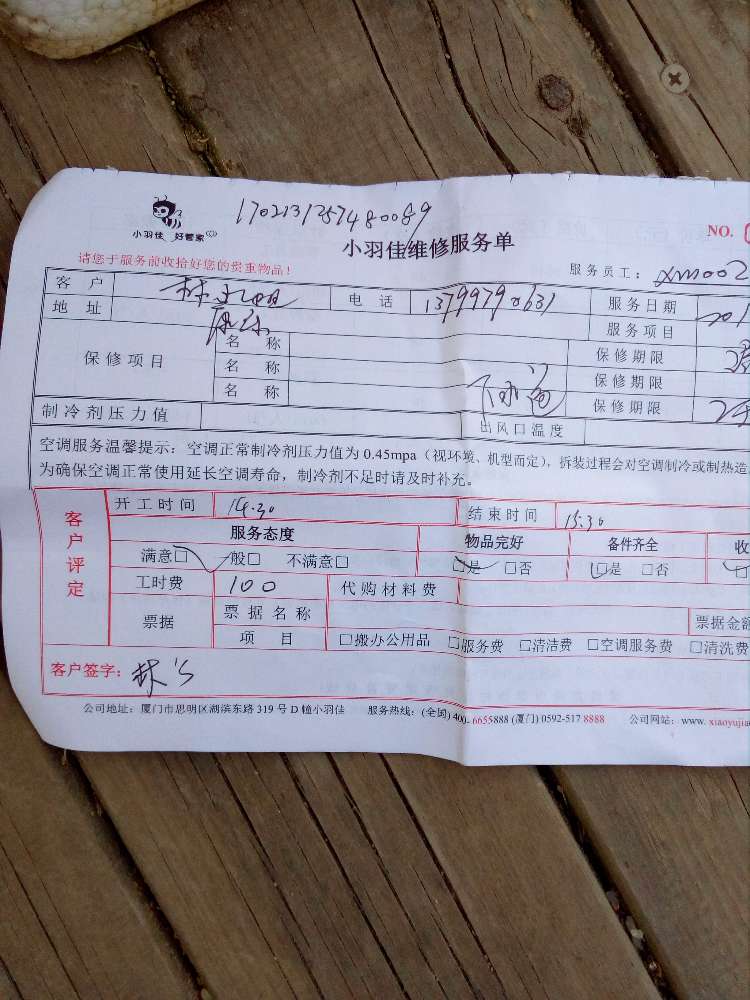 1702131257480089
小羽佳 好管家
小羽佳维修服务单
NO.
请您于服务前收拾好您的贵重物品！
服务员工：xm002
客户 林 电话 13799790631 服务日期 201
地址 服务项目
保修项目 名称 保修期限
名称 保修期限
名称 保修期限
制冷剂压力值 出风口温度
空调服务温馨提示：空调正常制冷剂压力值为 0.45mpa（视环境、机型而定），拆装过程会对空调制冷或制热造
为确保空调正常使用延长空调寿命，制冷剂不足时请及时补充。
客户评定
开工时间 14.30 结束时间 15.30
服务态度 物品完好 备件齐全 收
满意□ 一般□ 不满意□ □是 □否 □是 □否 □
工时费 100 代购材料费
票据 票据名称 票据金额
项目 □搬办公用品 □服务费 □清洁费 □空调服务费 □清洗费
客户签字：林
公司地址：厦门市思明区湖滨东路 319 号 D 幢小羽佳 服务热线：(全国) 400-6655888 (厦门) 0592-517 8888 公司网站：www. xiaoyujia